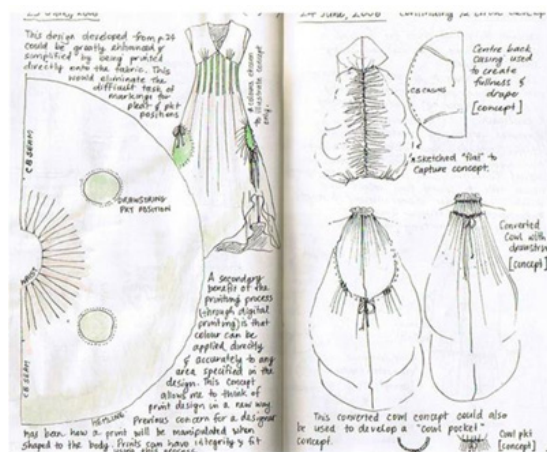 23 June, 2008
This design developed from p.24
could be greatly enhanced &
simplified by being printed
directly onto the fabric. This
would eliminate the
difficult task of
markings for
pleat & pkt
positions
colours chosen
to illustrate concept
only.
CB SEAM
DRAWSTRING
PKT POSITION
WAIST
CB SEAM
HEMLINE
A secondary
benefit of the
printing process
(through digital
printing) is that
colour can be
applied directly
& accurately to any
area specified in the
design. This concept
allows me to think of
print design in a new way
Previous concern for a designer
has been how a print will be manipulated when
shaped to the body. Prints can have integrity & fit
using this process
24 June, 2008
Continuing
Centre back
casing used
to create
fullness &
drape
[concept]
CB CASING
a sketched "flat" to
capture concept.
Converted
Cowl with
drawstring
[concept]
This converted cowl concept could also
be used to develop a "cowl pocket"
concept.
Cowl pkt
[concept]